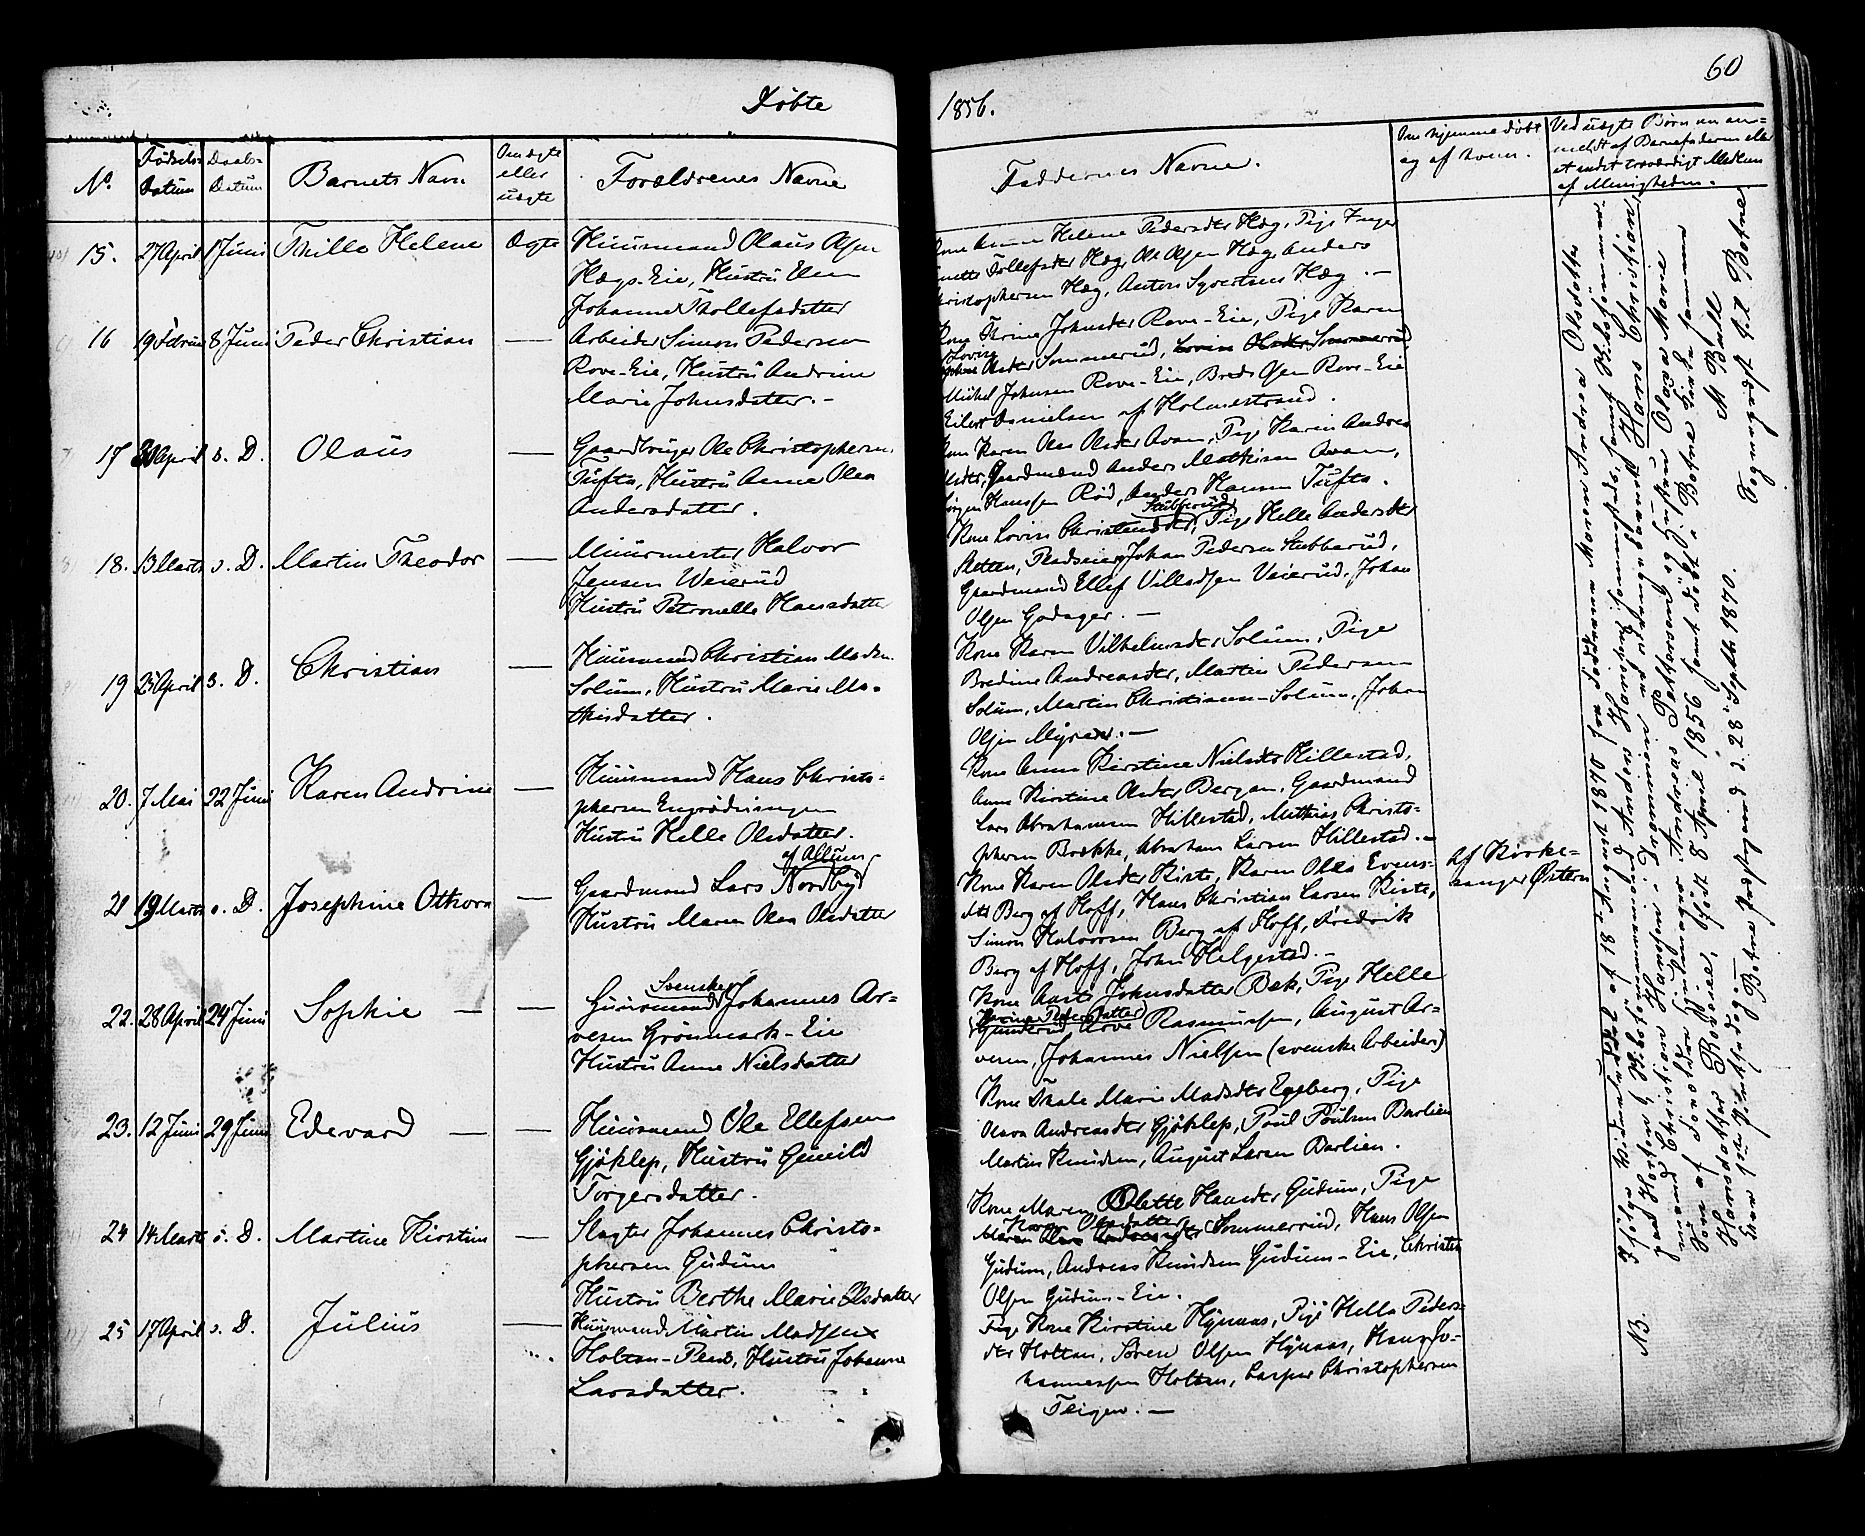 Døbte
1856.
60
No. Fødsels-Datum Daabs-Datum Barnets Navn Om ægte eller uægte Forældrenes Navne
Faddernes Navne. Om hjemmedøbt og af hvem. Ved uægte Børn om anmeldt af Barnefaderen eller et andet troværdigt Medlem af Menigheden.
15. 27 April 1 Juni Thille Helene Ægte Huusmand Olaus Olsen
Hægs-Eie, Hustru Elen
Johanne Thollefsdatter
Kone Anne Helene Pedersdter Hæg, Pige Inger
Tollefsdter Hæg, Ole Olsen Hæg, Anders
Christophersen Hæg, Anton Syvertsen Hæg. —
16 19 Februar 8 Juni Peder Christian — Arbeider Simon Pedersen
Rove-Eie, Hustru Andrine
Marie Johnsdatter. -
Kone Trine Johnsdter Rove-Eie, Pige Karen
Lovise Olsdter Sommerud, Lovise Olsdter Sommerud
Michel Johnsen Rove-Eie, Brede Olsen Rove-Eie
Eilert Danielsen af Holmestrand.
17 30 April s. D. Olaus — Gaardbruger Ole Christophersen
Tufte, Hustru Anne Olea
Andersdatter.
Kone Karen Olea Olsdter Aven, Pige Karen Andrea
Olsdter, Gaardmand Anders Mathisen Aven,
Jørgen Hanssen Rød, Anders Hansen Tufte.
18. 13 Marts s. D. Martin Theodor — Muurmester Halvor
Jensen Weierud
Hustru Petronelle Hansdatter
Stubberud
Kone Lovise Christensdter, Pige Helle Andersdter
Sletten, Pladseier Johan Pedersen Stubberud,
Gaardmand Ellef Villadsen Veierud, Johan
Olsen Godager. —
19 25 April s. D. Christian — Huusmand Christian Madsen
Solum, Hustru Marie Ma-
thisdatter.
Kone Karen Vilhelmsdter Solum, Pige
Bredine Andreasdter, Martin Pedersen
Solum, Martin Christiansen Solum, Johan
Olsen Myren. —
20. 7 Mai 22 Juni Karen Andrine — Huusmand Hans Christo-
phersen Engrødningen
Hustru Helle Olsdatter.
Kone Anne Kirstine Nielsdtr Hillestad,
Anne Kirstine Olsdter Bergan, Gaardmand
Lars Abrahamsen Hillestad, Mathias Christo-
phersen Brække, Abraham Larsen Hillestad. —
21 19 Marts s. D. Josephine Othora — Gaardmand Lars Nordby
af Allum
Hustru Maren Olea Olsdatter
Kone Karen Olsdter Kiste, Karen Olea Evens-
dtr Berg af Hoff, Hans Christian Larsen Kiste,
Simon Halvorsen Berg af Hoff, Fredrik
Berg af Hoff, John Helgestad. —
af Kirke-
sanger Østern
22. 28 April 24 Juni Sophie — — Svenske
Huusmand Johannes Ar-
vesen Grønmark-Eie
Hustru Anne Nielsdatter
Kone Aaste Johnsdatter Bek, Pige Helle
Karine Pedersdatter
Gunderud, Arve Rasmussen, August Ar-
vesen, Johannes Nielsen (svenske Arbeider)
23. 12 Juni 29 Juni Edevard — — Huusmand Ole Ellefsen
Gjøklep, Hustru Gunild
Torgersdatter.
Kone Thale Marie Madsdter Egeberg, Pige
Olava Andreasdter Gjøklep, Poul Poulsen Barlien
Martin Knudsen, August Larsen Barlien.
24 14 Marts s. D. Martine Kirstine — Slagter Johannes Christo-
phersen Gudum
Hustru Berthe Marie Olsdatter
Kone Maren Olette Hansdter Gudum, Pige
Karen Olsdatter
Maren Olava Andersdter Sommerrud, Hans Olsen
Gudum, Andreas Knudsen Gudum-Eie, Christen
Olsen Gudum-Eie.
25 17 April s. D. Julius — Huusmand Martin Madsen
Holtan-Plads, Hustru Johanne
Larsdatter.
Kone Kirstine Hynaas, Pige Helle Peders-
dter Holtan, Søren Olsen Hynaas, Hans Jo-
hannessen Holtan, Casper Christophersen
Teigen. —
NB. Ifølge Vidnesbyrd af 18de August 1870 fra Fødderne Maren Andrea Olsdatter
paa Horten og Skibstømmermand Anders Hansen sammesteds, samt Skibstømmer-
mand Christian Hansen i Drammen er ovennævnte Hans Christian,
Søn af Gjordemager Andreas Pettersen og Hustru Olava Marie
Hansdatter Roveeie, født 8 April 1856 samt døbt i Botne Kirke samme
Aars 1ste Pintsedag. —
Botne Præstegaard d. 28 Septb 1870. M Bull
Sogneprest til Botne